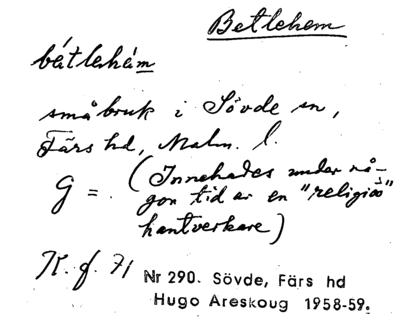 Betlehem
bätlehäm
småbruk i Sövde sn,
Färs hd, Malm. l.
G =. (Innehades under nå-
gon tid av en "religiös"
hantverkare)
K. f. 71
Nr 290. Sövde, Färs hd
Hugo Areskoug 1958-59.